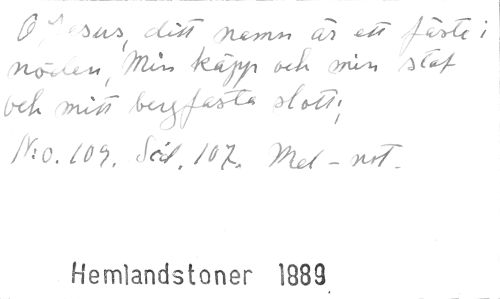 O Jesus, ditt namn är ett fäste i
nöden, Min käpp och min staf
och mitt bergfasta slott;
N:o. 109. Sid. 107. Mel-not.
Hemlandstoner 1889